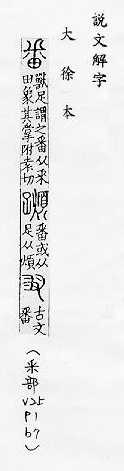 說文解字
大徐本
番
獸足謂之番从釆
田象其掌附袁切
番或从
足从煩
古文
番
(釆部
V25
P1
b7)